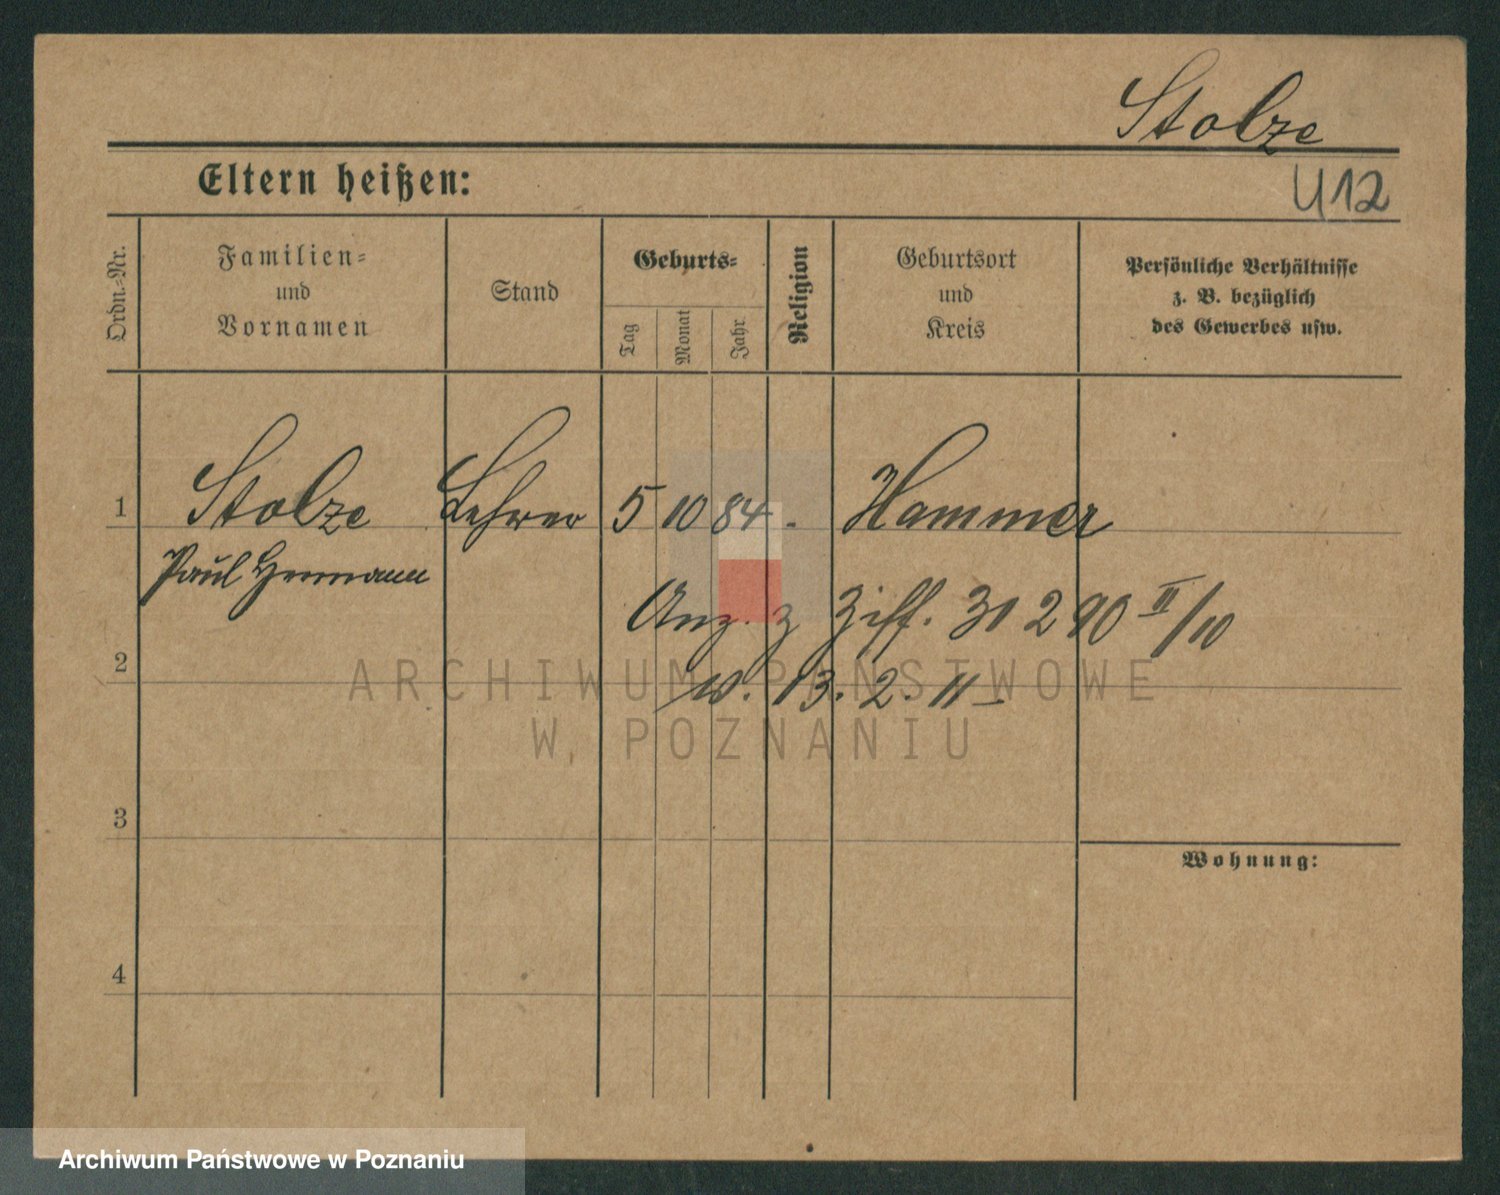 Stolze
Eltern heißen:
U12
Ordn.-Nr.
Familien-
und
Vornamen
Stand
Geburts-
Tag
Monat
Jahr
Religion
Geburtsort
und
Kreis
Persönliche Verhältnisse
z. B. bezüglich
des Gewerbes usw.
1
Stolze Lehrer 5 10 84 - Hammer
Paul Hermann
Anz. z Ziff. 30290 II/10
2
w. 13. 2. 11
ARCHIWUM PAŃSTWOWE
W POZNANIU
3
Wohnung:
4
Archiwum Państwowe w Poznaniu